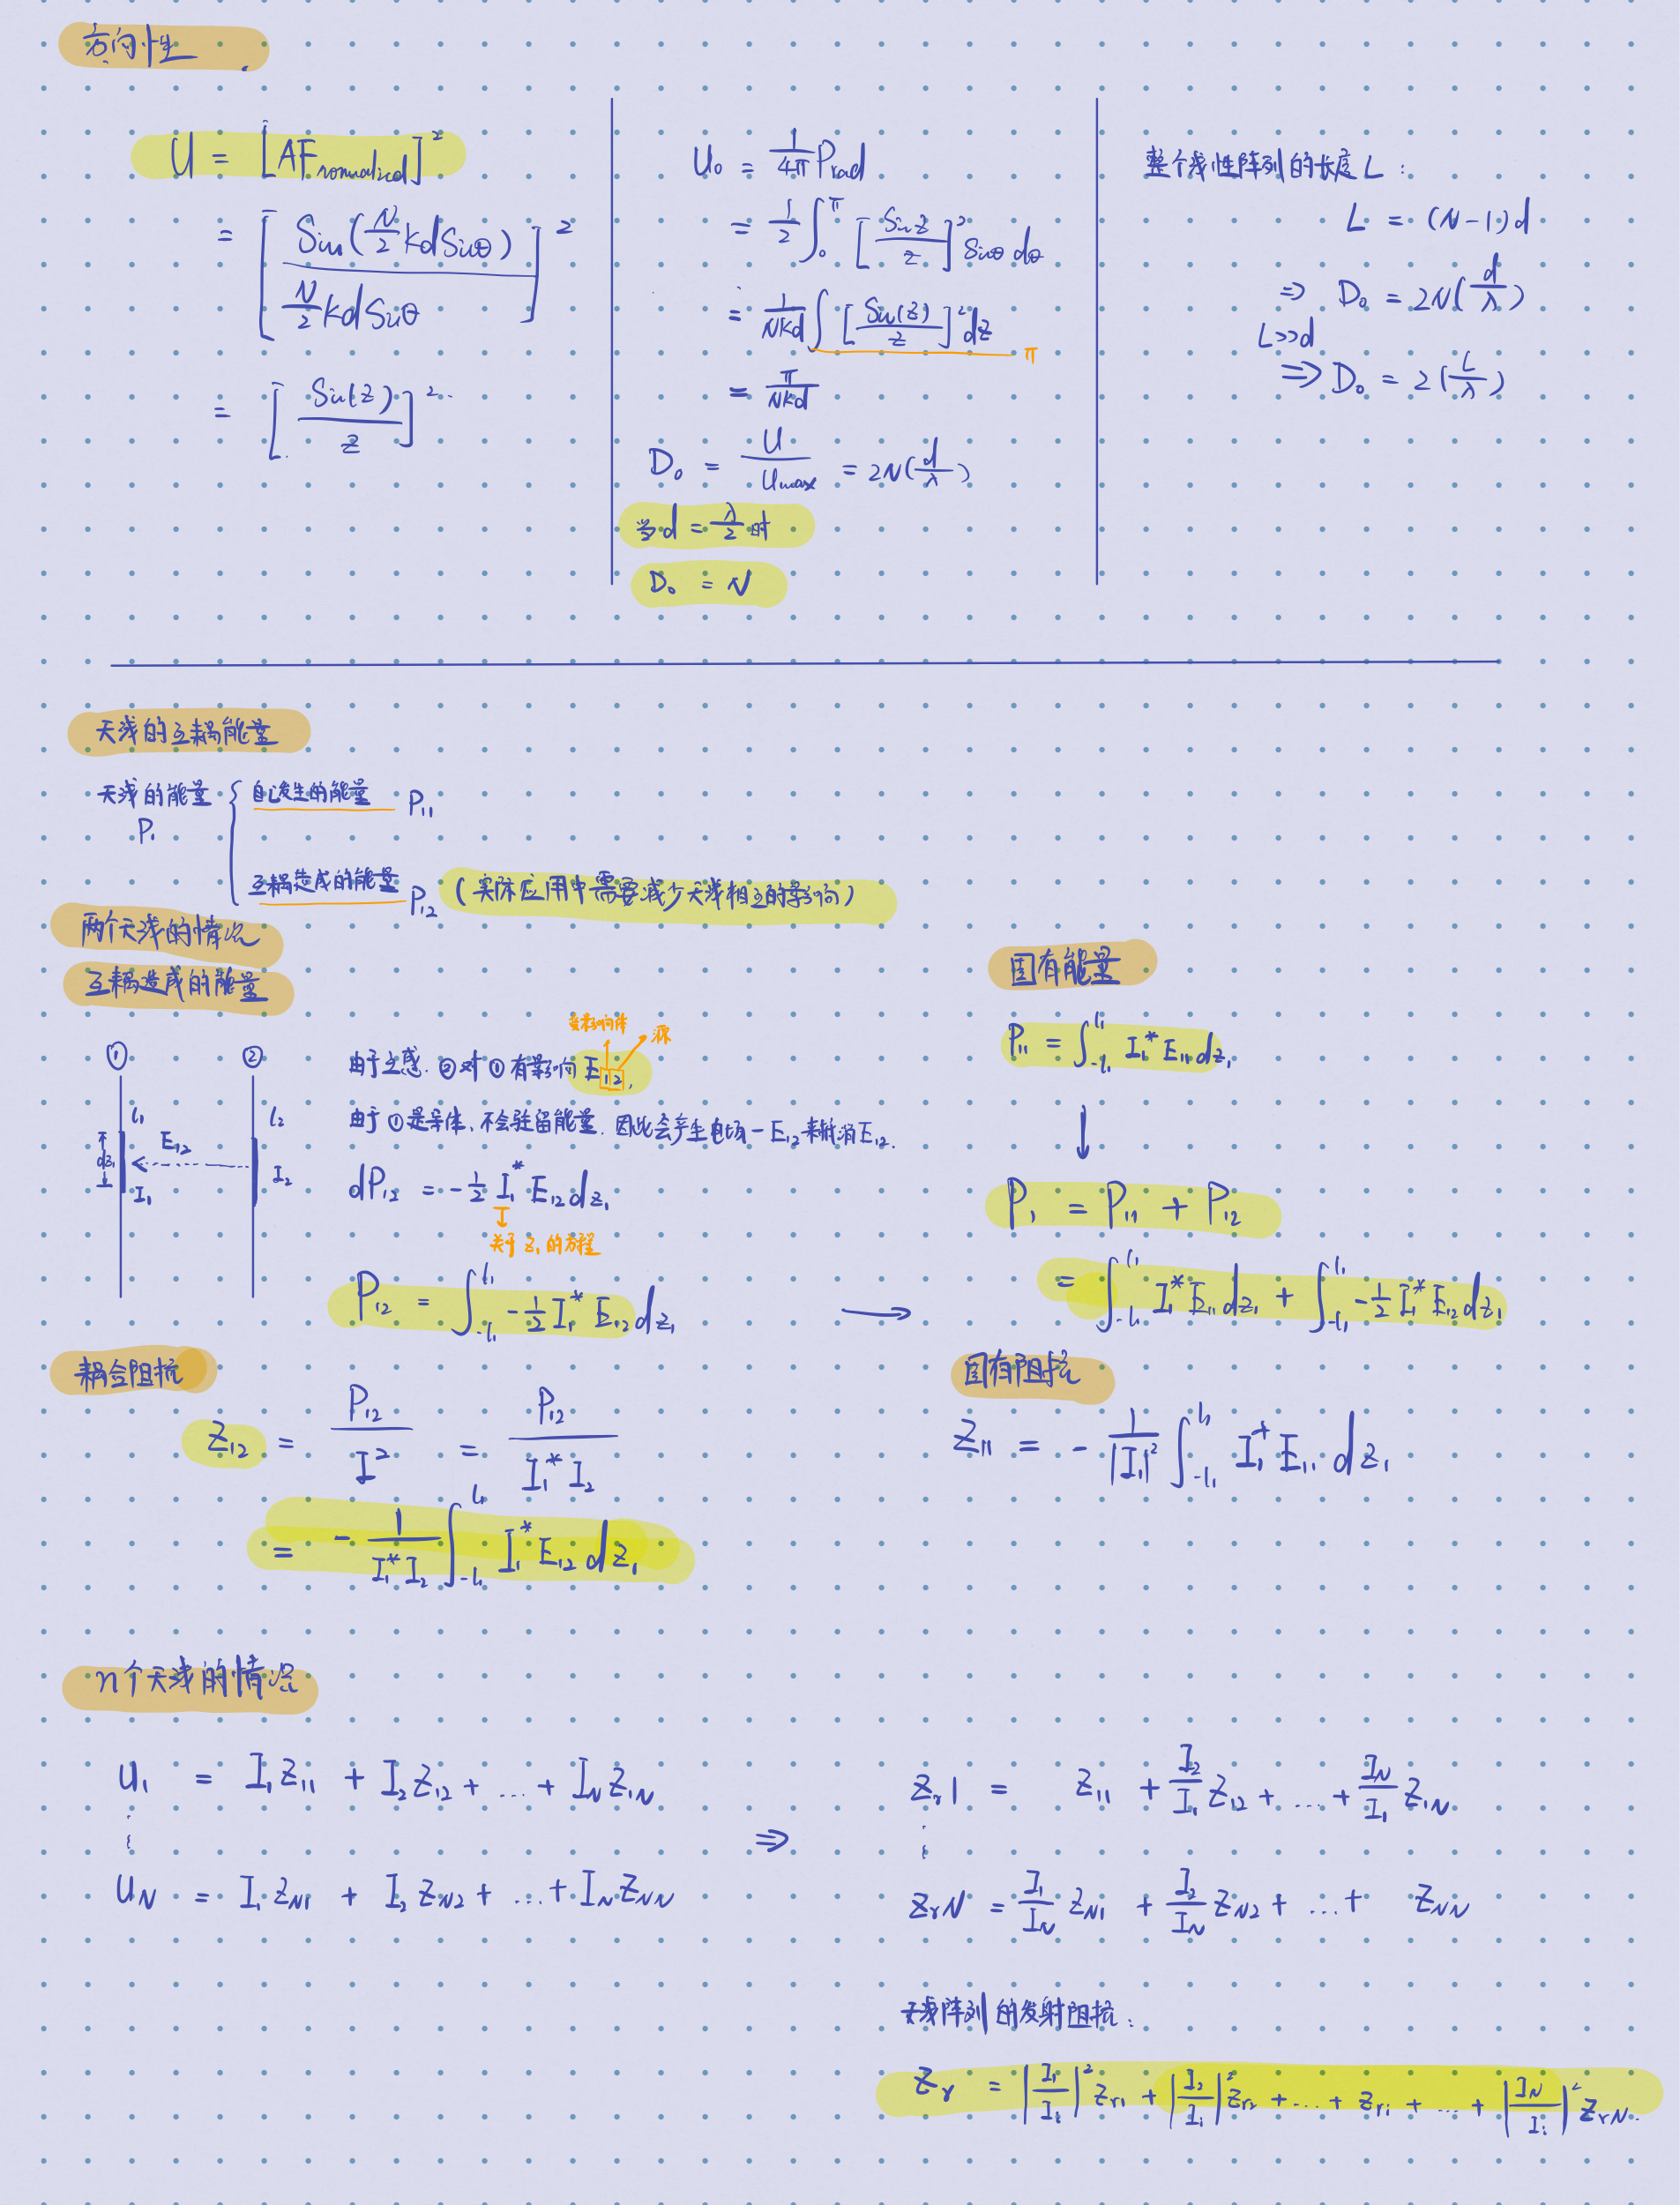 方向性
U = [AF normalized]²
= [Sin(N/2 kd Sinθ) / (N/2 kd Sinθ)]²
= [Sin(z) / z]²
U₀ = 1/4π Prad
= 1/2 ∫₀^π [Sin z / z]² Sinθ dθ
= 1/Nkd ∫ [Sin(z) / z]² dz π
= π/Nkd
D₀ = U/Umax = 2N(d/λ)
当 d = λ/2 时
D₀ = N
整个线性阵列的长度 L：
L = (N-1)d
⇒ D₀ = 2N(d/λ)
L>>d
⇒ D₀ = 2(L/λ)
天线的互耦能量
天线的能量 P₁
自己发生的能量 P₁₁
互耦造成的能量 P₁₂ (实际应用中需要减少天线相互的影响)
两个天线的情况
互耦造成的能量
① ②
l₁ l₂
dz₁ E₁₂
I₁ I₂
受影响体 源
由于互感. ②对①有影响 E₁₂,
由于①是导体, 不会驻留能量. 因此会产生电场 -E₁₂来抵消E₁₂.
dP₁₂ = -1/2 I₁* E₁₂ dz₁
关于 z₁ 的方程
P₁₂ = ∫_{-l₁}^{l₁} -1/2 I₁* E₁₂ dz₁ →
固有能量
P₁₁ = ∫_{-l₁}^{l₁} I₁* E₁₁ dz₁
↓
P₁ = P₁₁ + P₁₂
= ∫_{-l₁}^{l₁} I₁* E₁₁ dz₁ + ∫_{-l₁}^{l₁} -1/2 I₁* E₁₂ dz₁
耦合阻抗
Z₁₂ = P₁₂/I² = P₁₂/(I₁* I₂)
= -1/(I₁* I₂) ∫_{-l₁}^{l₁} I₁* E₁₂ dz₁
固有阻抗
Z₁₁ = -1/|I₁|² ∫_{-l₁}^{l₁} I₁* E₁₁ dz₁
n个天线的情况
U₁ = I₁Z₁₁ + I₂Z₁₂ + ... + I_N Z₁N
⋮
U_N = I₁Z_N1 + I₂Z_N2 + ... + I_N Z_NN
⇒
Zr1 = Z₁₁ + I₂/I₁ Z₁₂ + ... + I_N/I₁ Z₁N
⋮
ZrN = I₁/I_N Z_N1 + I₂/I_N Z_N2 + ... + Z_NN
天线阵列的发射阻抗：
Zr = |I₁/Ii|² Zr1 + |I₂/Ii|² Zr2 + ... + Zri + ... + |I_N/Ii|² ZrN.